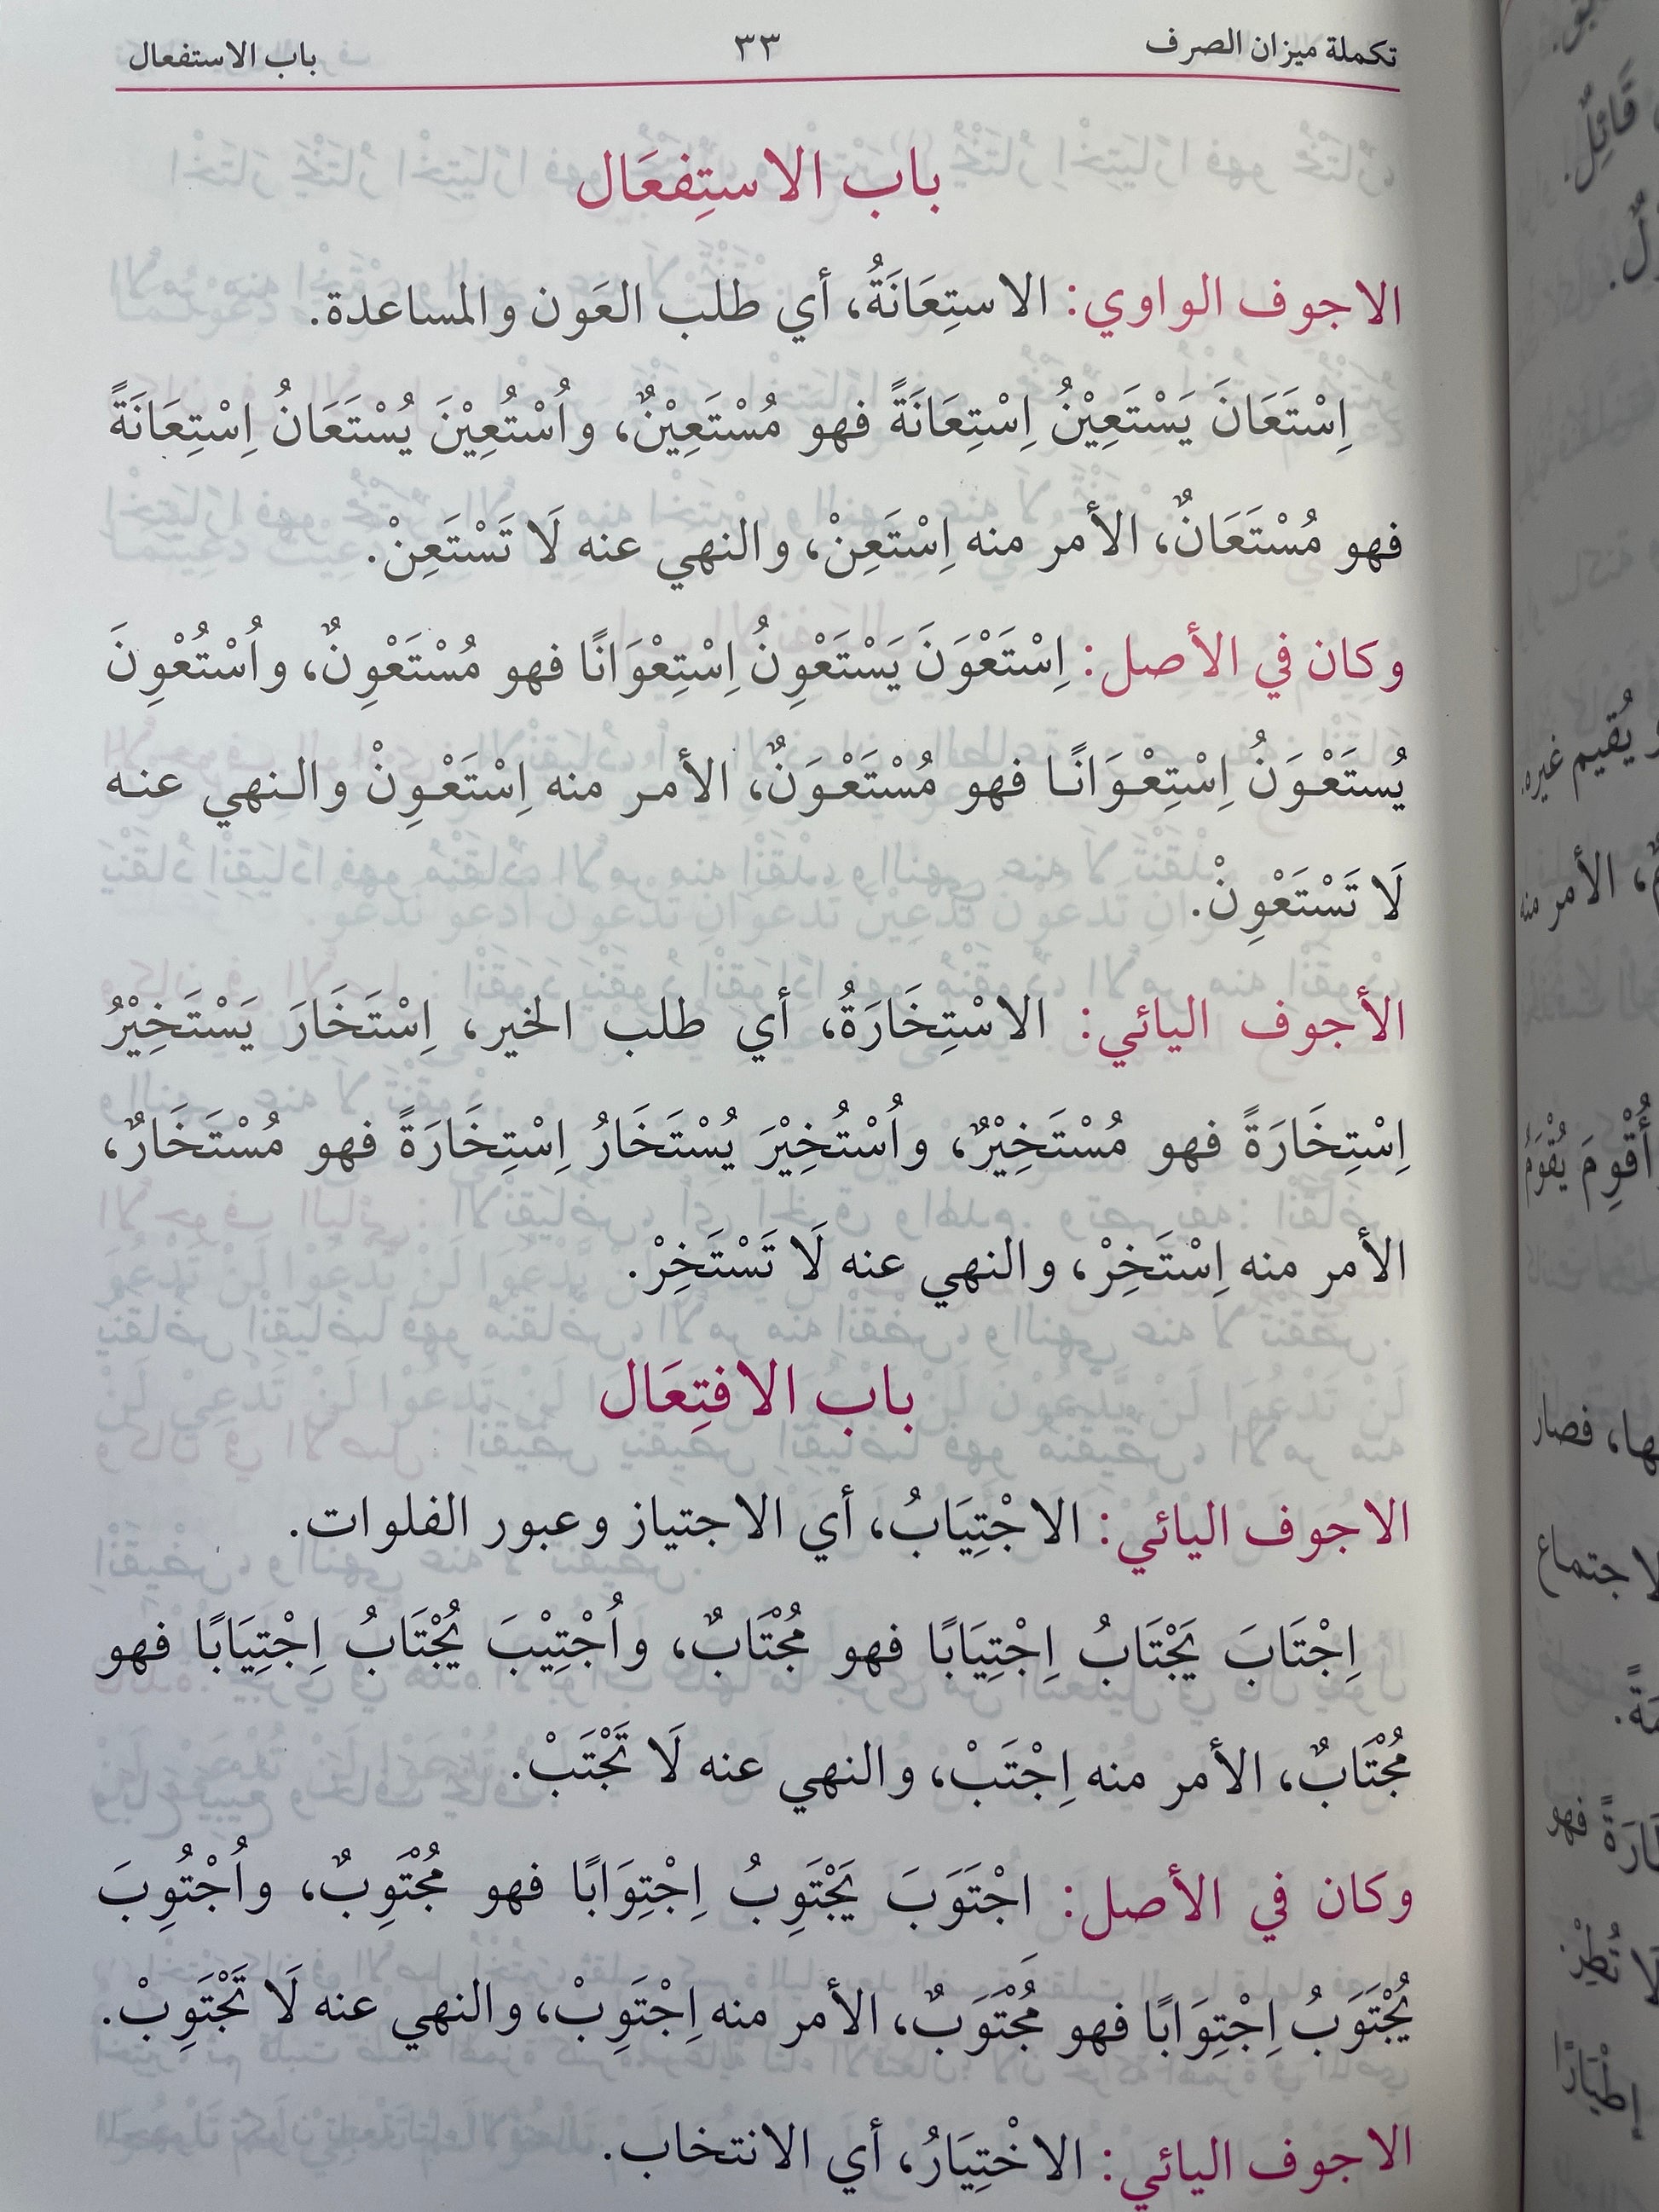 تكملة ميزان الصرف ٣٣ باب الاستفعال
باب الاستِفعَال
الاجوف الواوي: الاستِعَانَةُ، أي طلب العَون والمساعدة.
اِسْتَعَانَ يَسْتَعِيْنُ اِسْتِعَانَةً فهو مُسْتَعِيْنٌ، واُسْتُعِيْنَ يُسْتَعَانُ اِسْتِعَانَةً
فهو مُسْتَعَانٌ، الأمر منه اِسْتَعِنْ، والنهي عنه لَا تَسْتَعِنْ.
وكان في الأصل: اِسْتَعْوَنَ يَسْتَعْوِنُ اِسْتِعْوَانًا فهو مُسْتَعْوِنٌ، واُسْتُعْوِنَ
يُستَعْوَنُ اِسْتِعْوَانًا فهو مُسْتَعْوَنٌ، الأمر منه اِسْتَعْوِنْ والنهي عنه
لَا تَسْتَعْوِنْ.
الأجوف اليائي: الاسْتِخَارَةُ، أي طلب الخير، اِسْتَخَارَ يَسْتَخِيْرُ
اِسْتِخَارَةً فهو مُسْتَخِيْرٌ، واُسْتُخِيْرَ يُسْتَخَارُ اِسْتِخَارَةً فهو مُسْتَخَارٌ،
الأمر منه اِسْتَخِرْ، والنهي عنه لَا تَسْتَخِرْ.
باب الافتِعَال
الاجوف اليائي: الاجْتِيَابُ، أي الاجتياز وعبور الفلوات.
اِجْتَابَ يَجْتَابُ اِجْتِيَابًا فهو مُجْتَابٌ، واُجْتِيْبَ يُجْتَابُ اِجْتِيَابًا فهو
مُجْتَابٌ، الأمر منه اِجْتَبْ، والنهي عنه لَا تَجْتَبْ.
وكان في الأصل: اجْتَوَبَ يَجْتَوِبُ اِجْتِوَابًا فهو مُجْتَوِبٌ، واُجْتُوِبَ
يُجْتَوَبُ اِجْتِوَابًا فهو مُجْتَوَبٌ، الأمر منه اِجْتَوِبْ، والنهي عنه لَا تَجْتَوِبْ.
الاجوف اليائي: الاخْتِيَارُ، أي الانتخاب.
قَائِلٌ.
و يُقيم غيره.
، الأمر منه
أُقْوِمَ يُقْوَمُ
ها، فصار